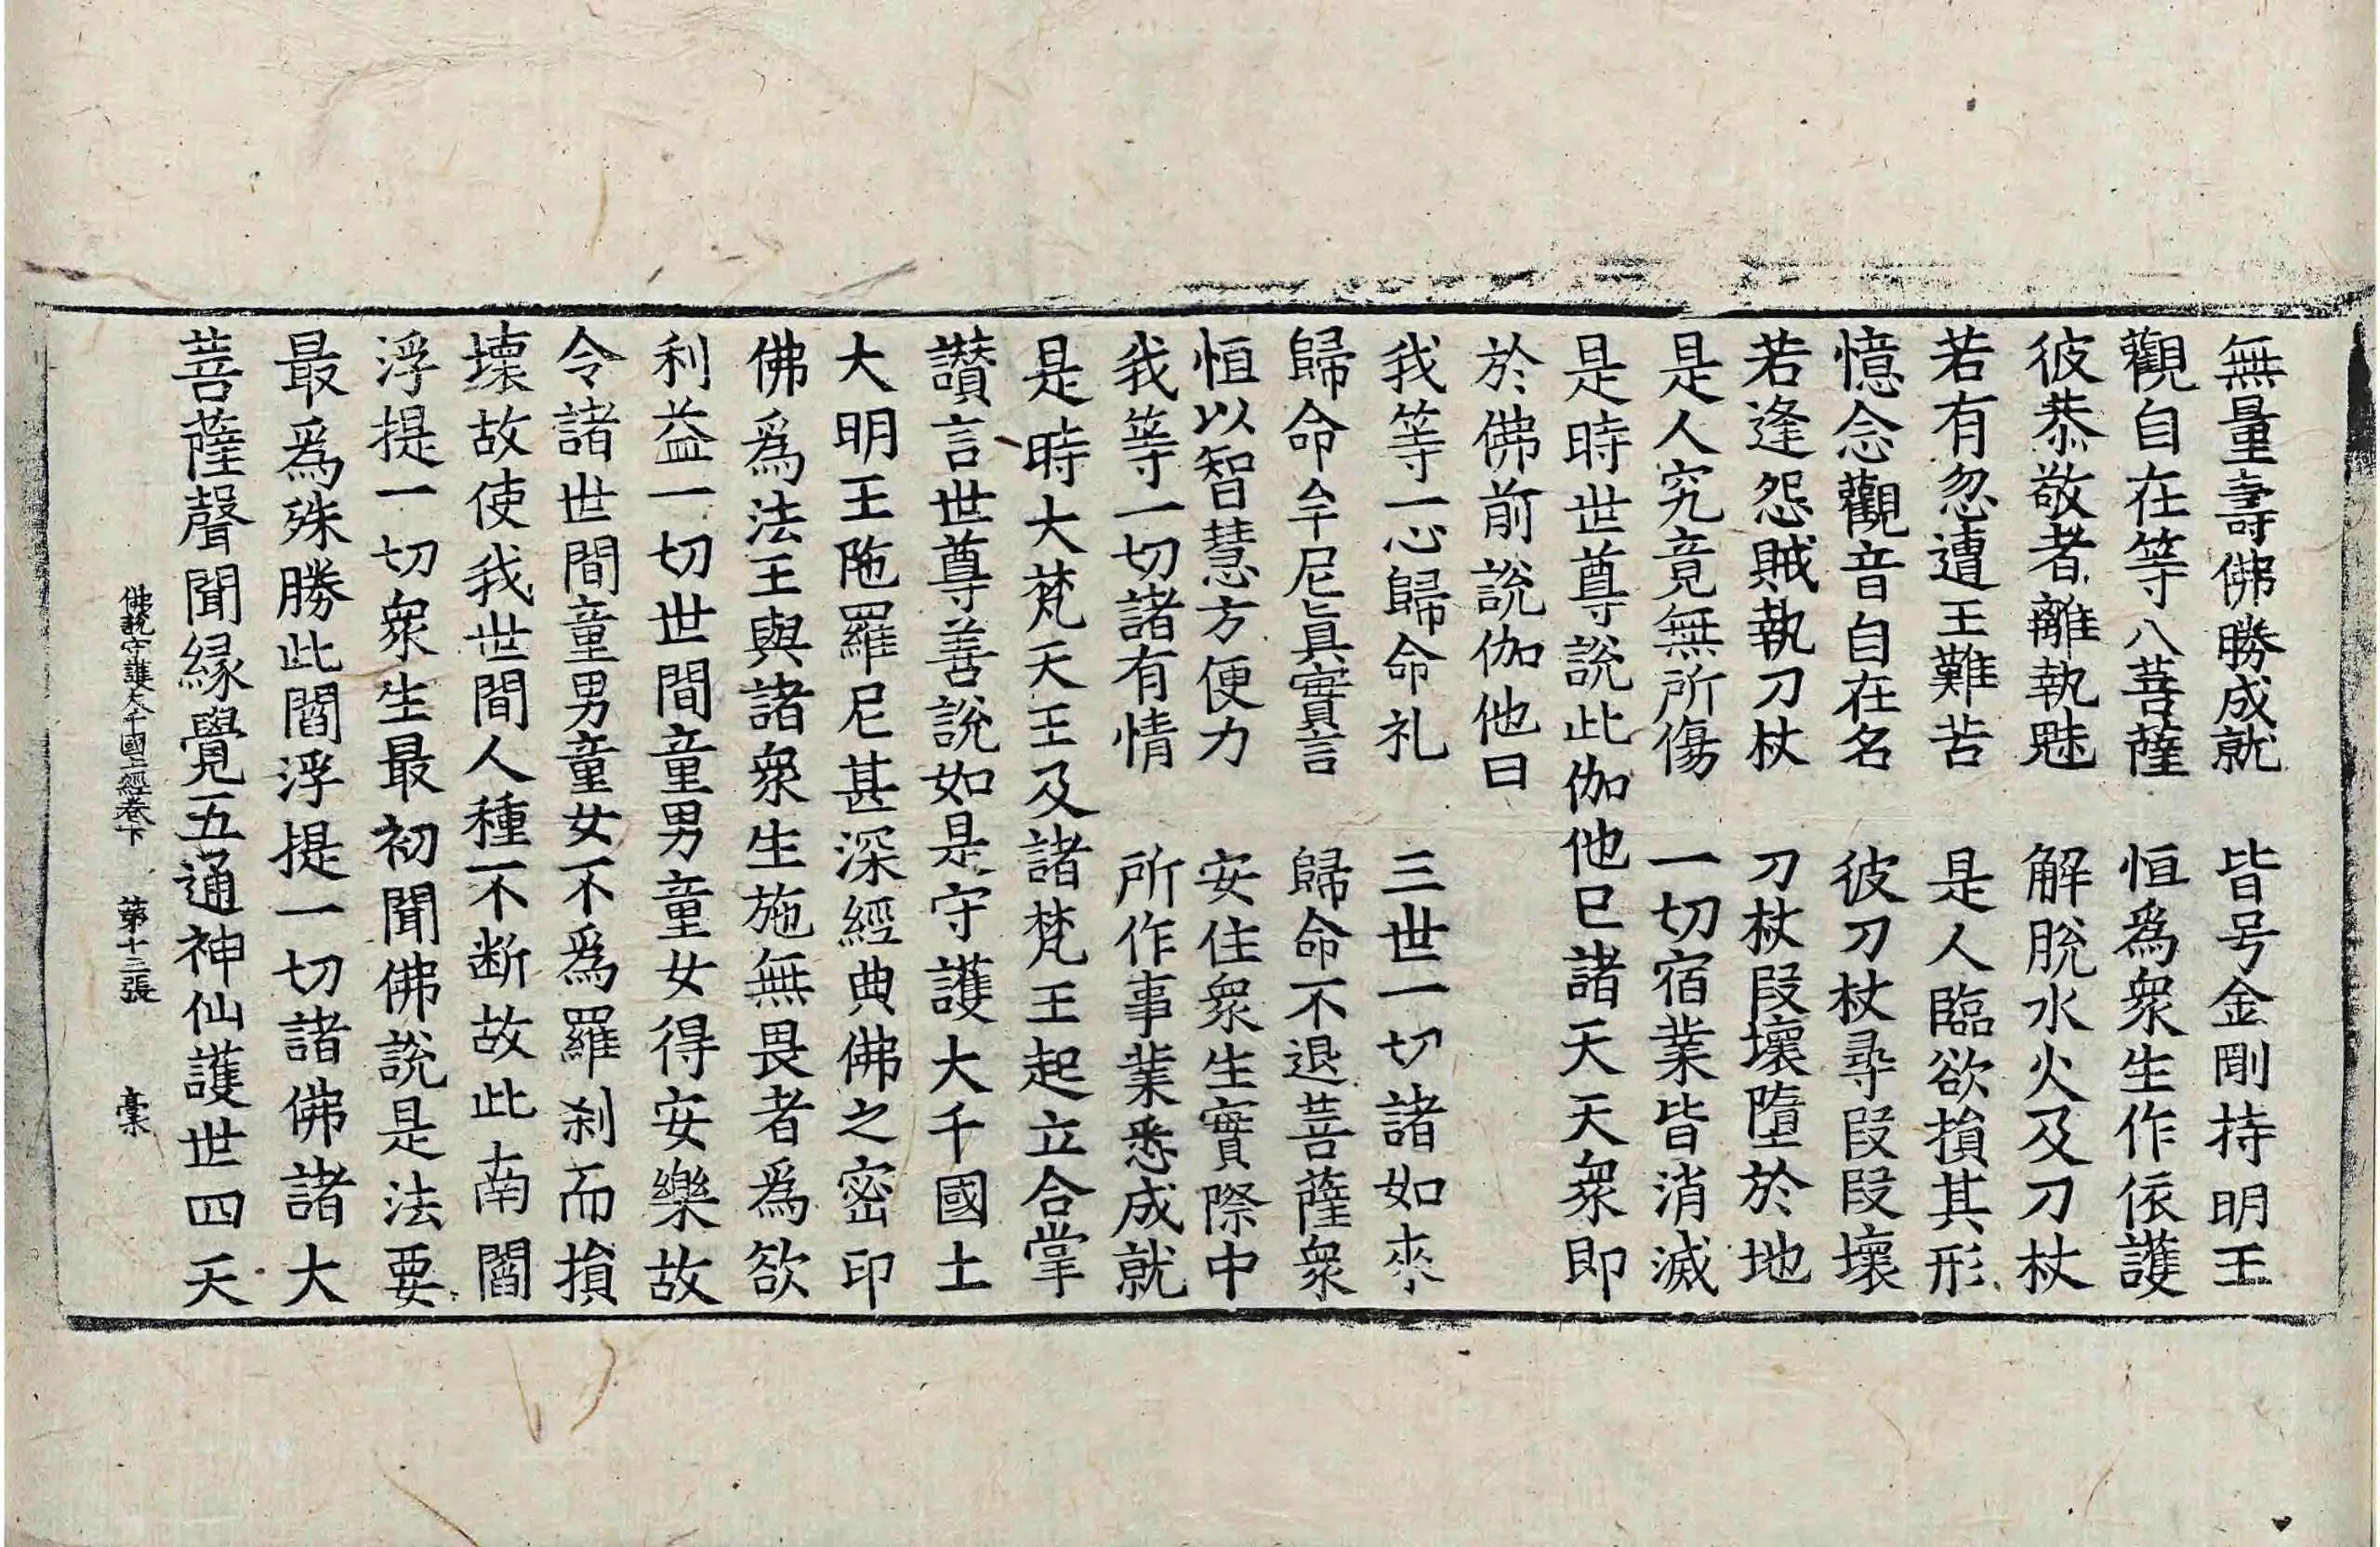 無量壽佛勝成就　皆号金剛持明王
觀自在等八菩薩　恒爲衆生作依護
彼恭敬者離執魅　解脫水火及刀杖
若有忽遭王難苦　是人臨欲損其形
憶念觀音自在名　彼刀杖尋段段壞
若逢怨賊執刀杖　刀杖段壞墮於地
是人究竟無所傷　一切宿業皆消滅
是時世尊說此伽他已諸天天衆即
於佛前說伽他曰
我等一心歸命礼　三世一切諸如來
歸命牟尼眞實言　歸命不退菩薩衆
恒以智慧方便力　安住衆生實際中
我等一切諸有情　所作事業悉成就
是時大梵天王及諸梵王起立合掌
讃言世尊善說如是守護大千國土
大明王陁羅尼甚深經典佛之密印
佛爲法王與諸衆生施無畏者爲欲
利益一切世間童男童女得安樂故
令諸世間童男童女不爲羅刹而損
壞故使我世間人種不断故此南閻
浮提一切衆生最初聞佛說是法要
最爲殊勝此閻浮提一切諸佛諸大
菩薩聲聞緣覺五通神仙護世四天
佛說守護大千國土經卷下　第十三張　稾